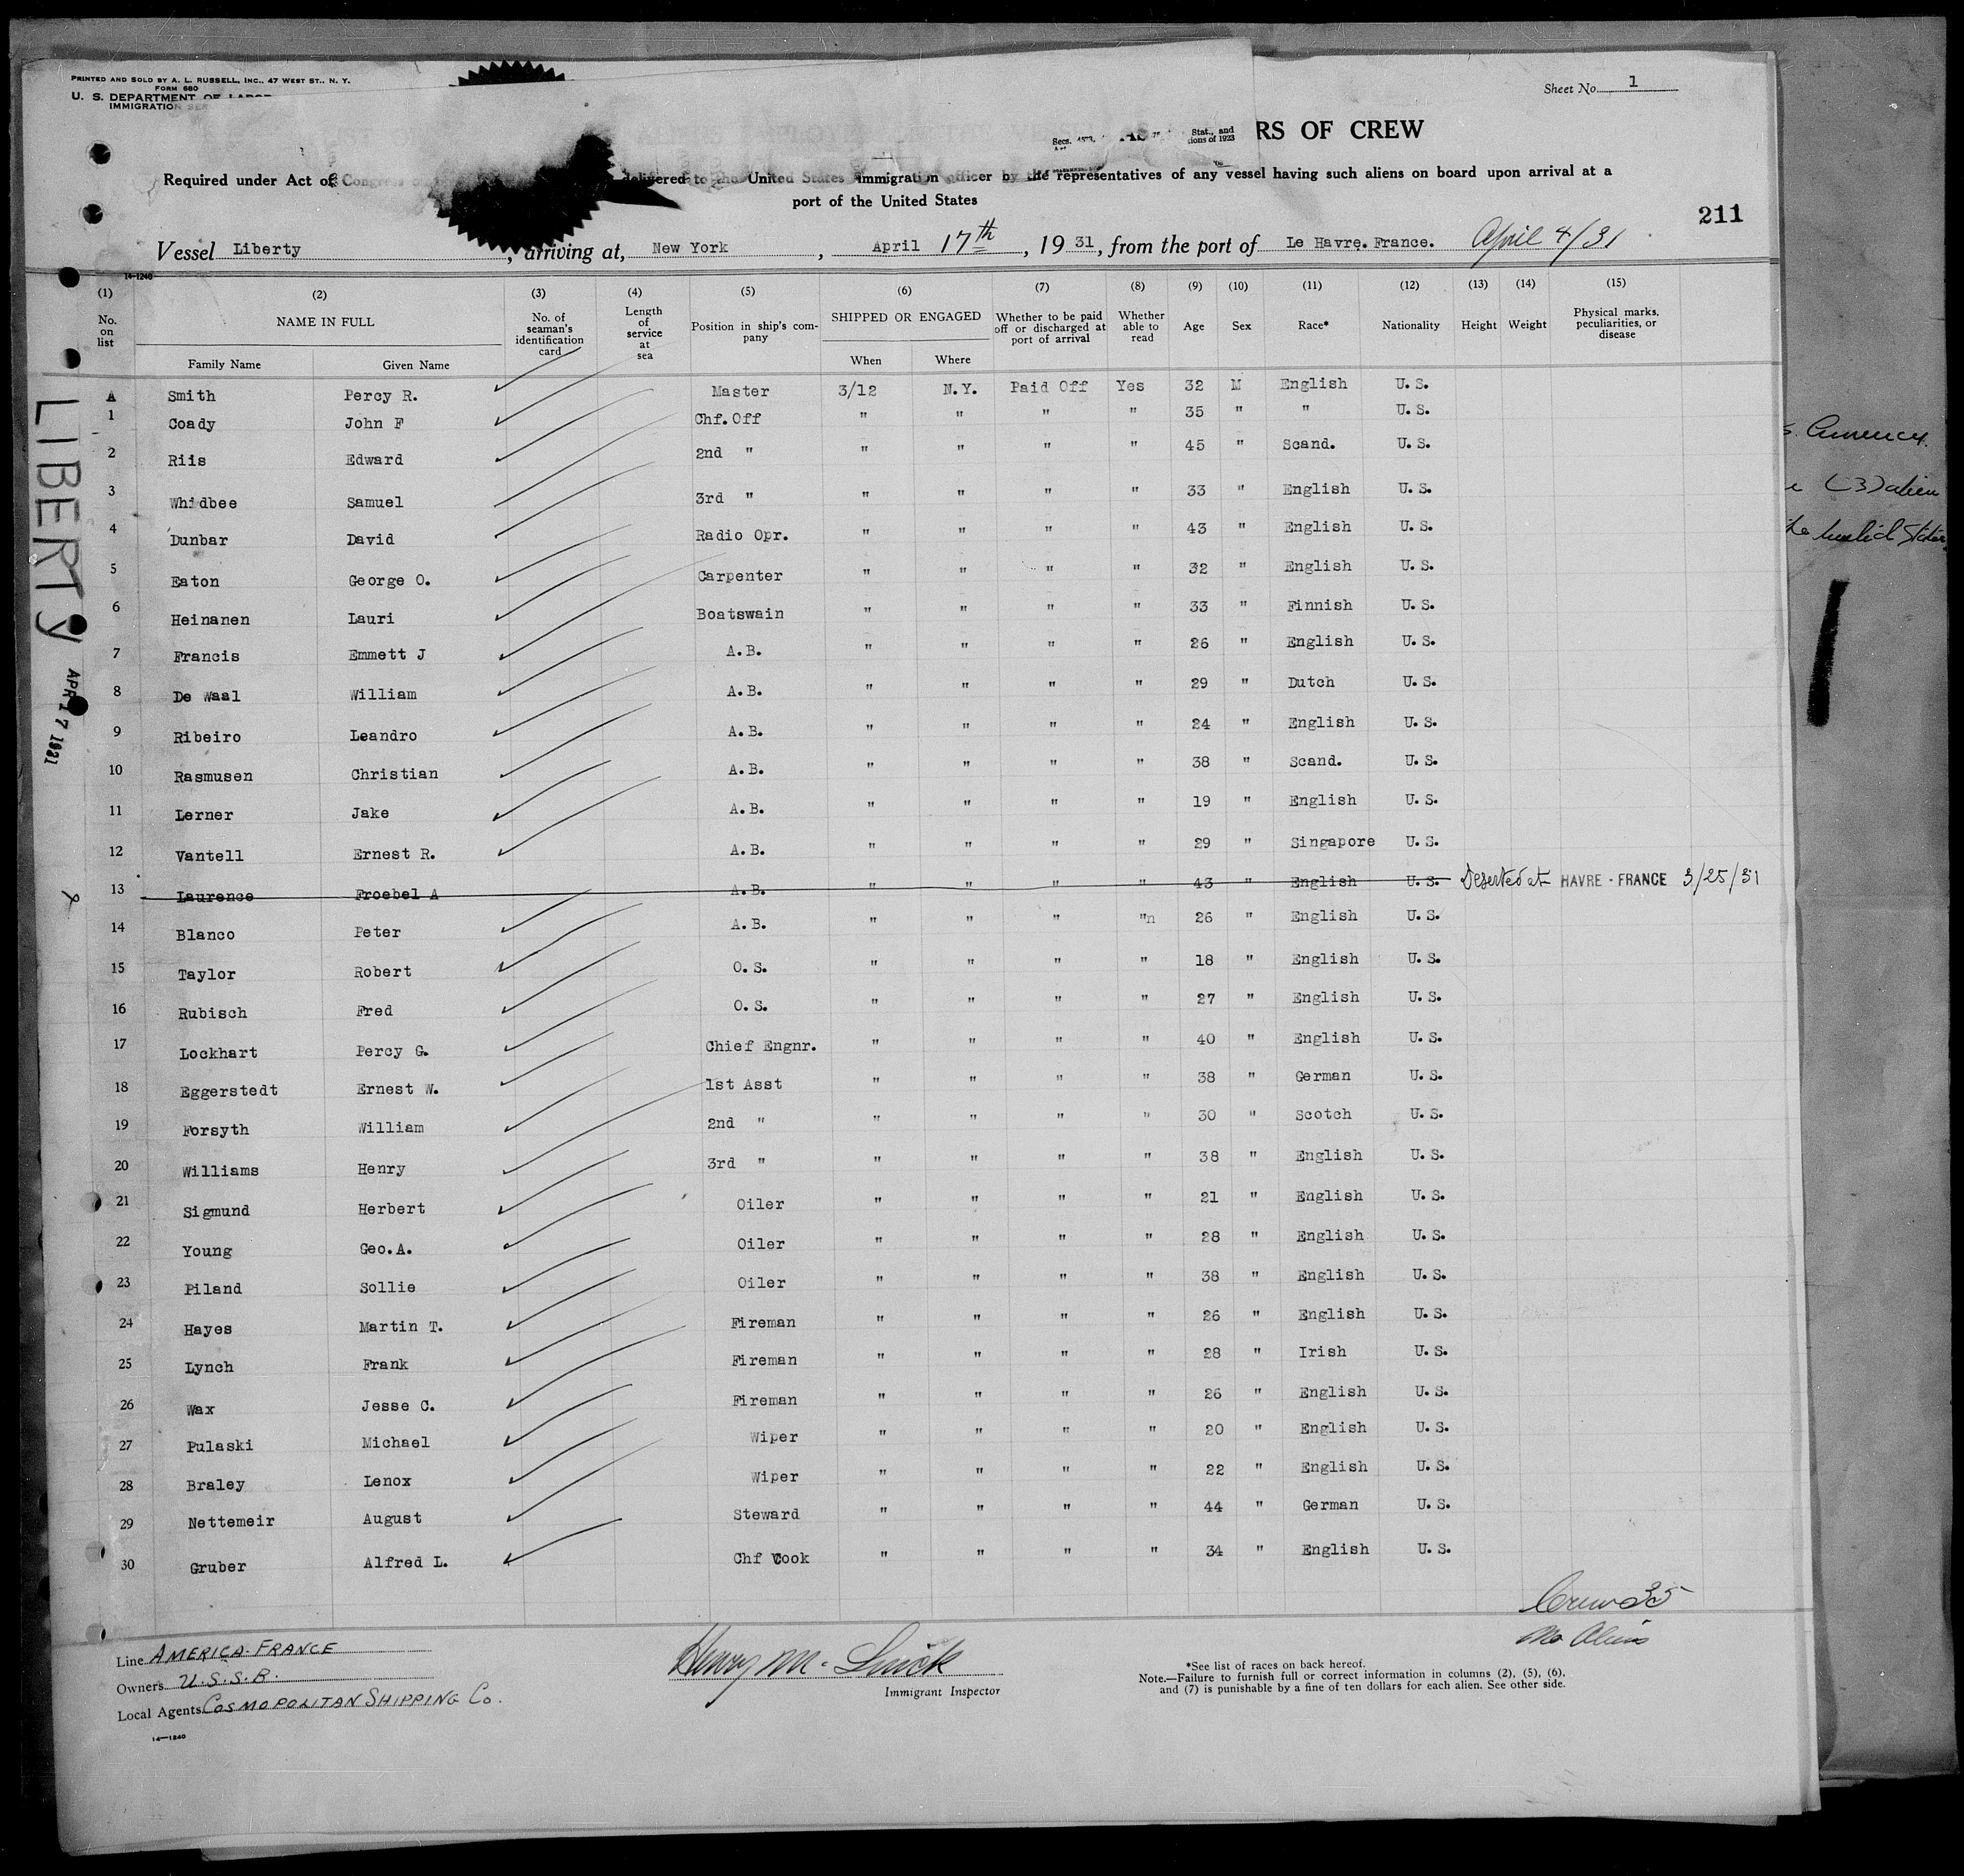 PRINTED AND SOLD BY A. L. RUSSELL, INC., 47 WEST ST., N. Y.
FORM 680
U. S. DEPARTMENT OF LABOR
IMMIGRATION
Sheet No. 1
Secs. Stat., and
ions of 1923
RS OF CREW
Required under Act of Congress delivered to the United States immigration officer by the representatives of any vessel having such aliens on board upon arrival at a
port of the United States
211
Vessel Liberty, arriving at, New York, April 17th, 1931, from the port of Le Havre. France. April 4/31
14-1240
(1) (2) (3) (4) (5) (6) (7) (8) (9) (10) (11) (12) (13) (14) (15)
No. on list NAME IN FULL No. of seaman's identification card Length of service at sea Position in ship's company SHIPPED OR ENGAGED Whether to be paid off or discharged at port of arrival Whether able to read Age Sex Race* Nationality Height Weight Physical marks, peculiarities, or disease
Family Name Given Name When Where
A Smith Percy R. Master 3/12 N.Y. Paid Off Yes 32 M English U. S.
1 Coady John F Chf. Off " " " " 35 " " U. S.
2 Riis Edward 2nd " " " " " 45 " Scand. U. S.
3 Whidbee Samuel 3rd " " " " " 33 " English U. S.
4 Dunbar David Radio Opr. " " " " 43 " English U. S.
5 Eaton George O. Carpenter " " " " 32 " English U. S.
6 Heinanen Lauri Boatswain " " " " 33 " Finnish U. S.
7 Francis Emmett J A.B. " " " " 26 " English U. S.
8 De Waal William A.B. " " " " 29 " Dutch U. S.
9 Ribeiro Leandro A.B. " " " " 24 " English U. S.
10 Rasmusen Christian A.B. " " " " 38 " Scand. U. S.
11 Lerner Jake A.B. " " " " 19 " English U. S.
12 Vantell Ernest R. A.B. " " " " 29 " Singapore U. S.
13 Laurence Froebel A A.B. " " " " 43 " English U. S. Deserted at HAVRE - FRANCE 3/25/31
14 Blanco Peter A.B. " " " "n 26 " English U. S.
15 Taylor Robert O.S. " " " " 18 " English U. S.
16 Rubisch Fred O.S. " " " " 27 " English U. S.
17 Lockhart Percy G. Chief Engnr. " " " " 40 " English U. S.
18 Eggerstedt Ernest W. 1st Asst " " " " 38 " German U. S.
19 Forsyth William 2nd " " " " " 30 " Scotch U. S.
20 Williams Henry 3rd " " " " " 38 " English U. S.
21 Sigmund Herbert Oiler " " " " 21 " English U. S.
22 Young Geo.A. Oiler " " " " 28 " English U. S.
23 Piland Sollie Oiler " " " " 38 " English U. S.
24 Hayes Martin T. Fireman " " " " 26 " English U. S.
25 Lynch Frank Fireman " " " " 28 " Irish U. S.
26 Wax Jesse C. Fireman " " " " 26 " English U. S.
27 Pulaski Michael Wiper " " " " 20 " English U. S.
28 Braley Lenox Wiper " " " " 22 " English U. S.
29 Nettemeir August Steward " " " " 44 " German U. S.
30 Gruber Alfred L. Chf Cook " " " " 34 " English U. S.
Crew 35
No Aliens
Line AMERICA-FRANCE
Owners U.S.S.B.
Local Agents COSMOPOLITAN SHIPPING CO.
14-1240
Immigrant Inspector
*See list of races on back hereof.
Note.—Failure to furnish full or correct information in columns (2), (5), (6),
and (7) is punishable by a fine of ten dollars for each alien. See other side.
LIBERTY
APR 17 1931
(3) alien